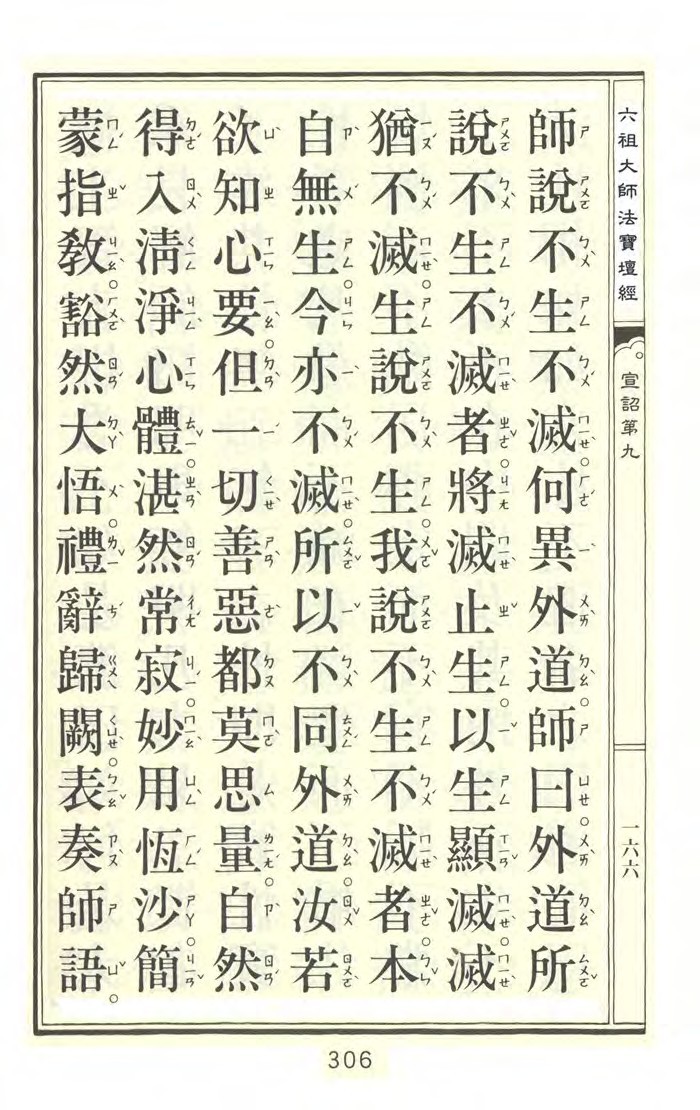 六祖大師法寶壇經
宣詔第九
一六六
師說不生不滅。何異外道。師曰。外道所
說不生不滅者。將滅止生。以生顯滅。滅
猶不滅。生說不生。我說不生不滅者。本
自無生。今亦不滅。所以不同外道。汝若
欲知心要。但一切善惡。都莫思量。自然
得入清淨心體。湛然常寂。妙用恆沙。簡
蒙指教。豁然大悟。禮辭歸闕。表奏師語。
306